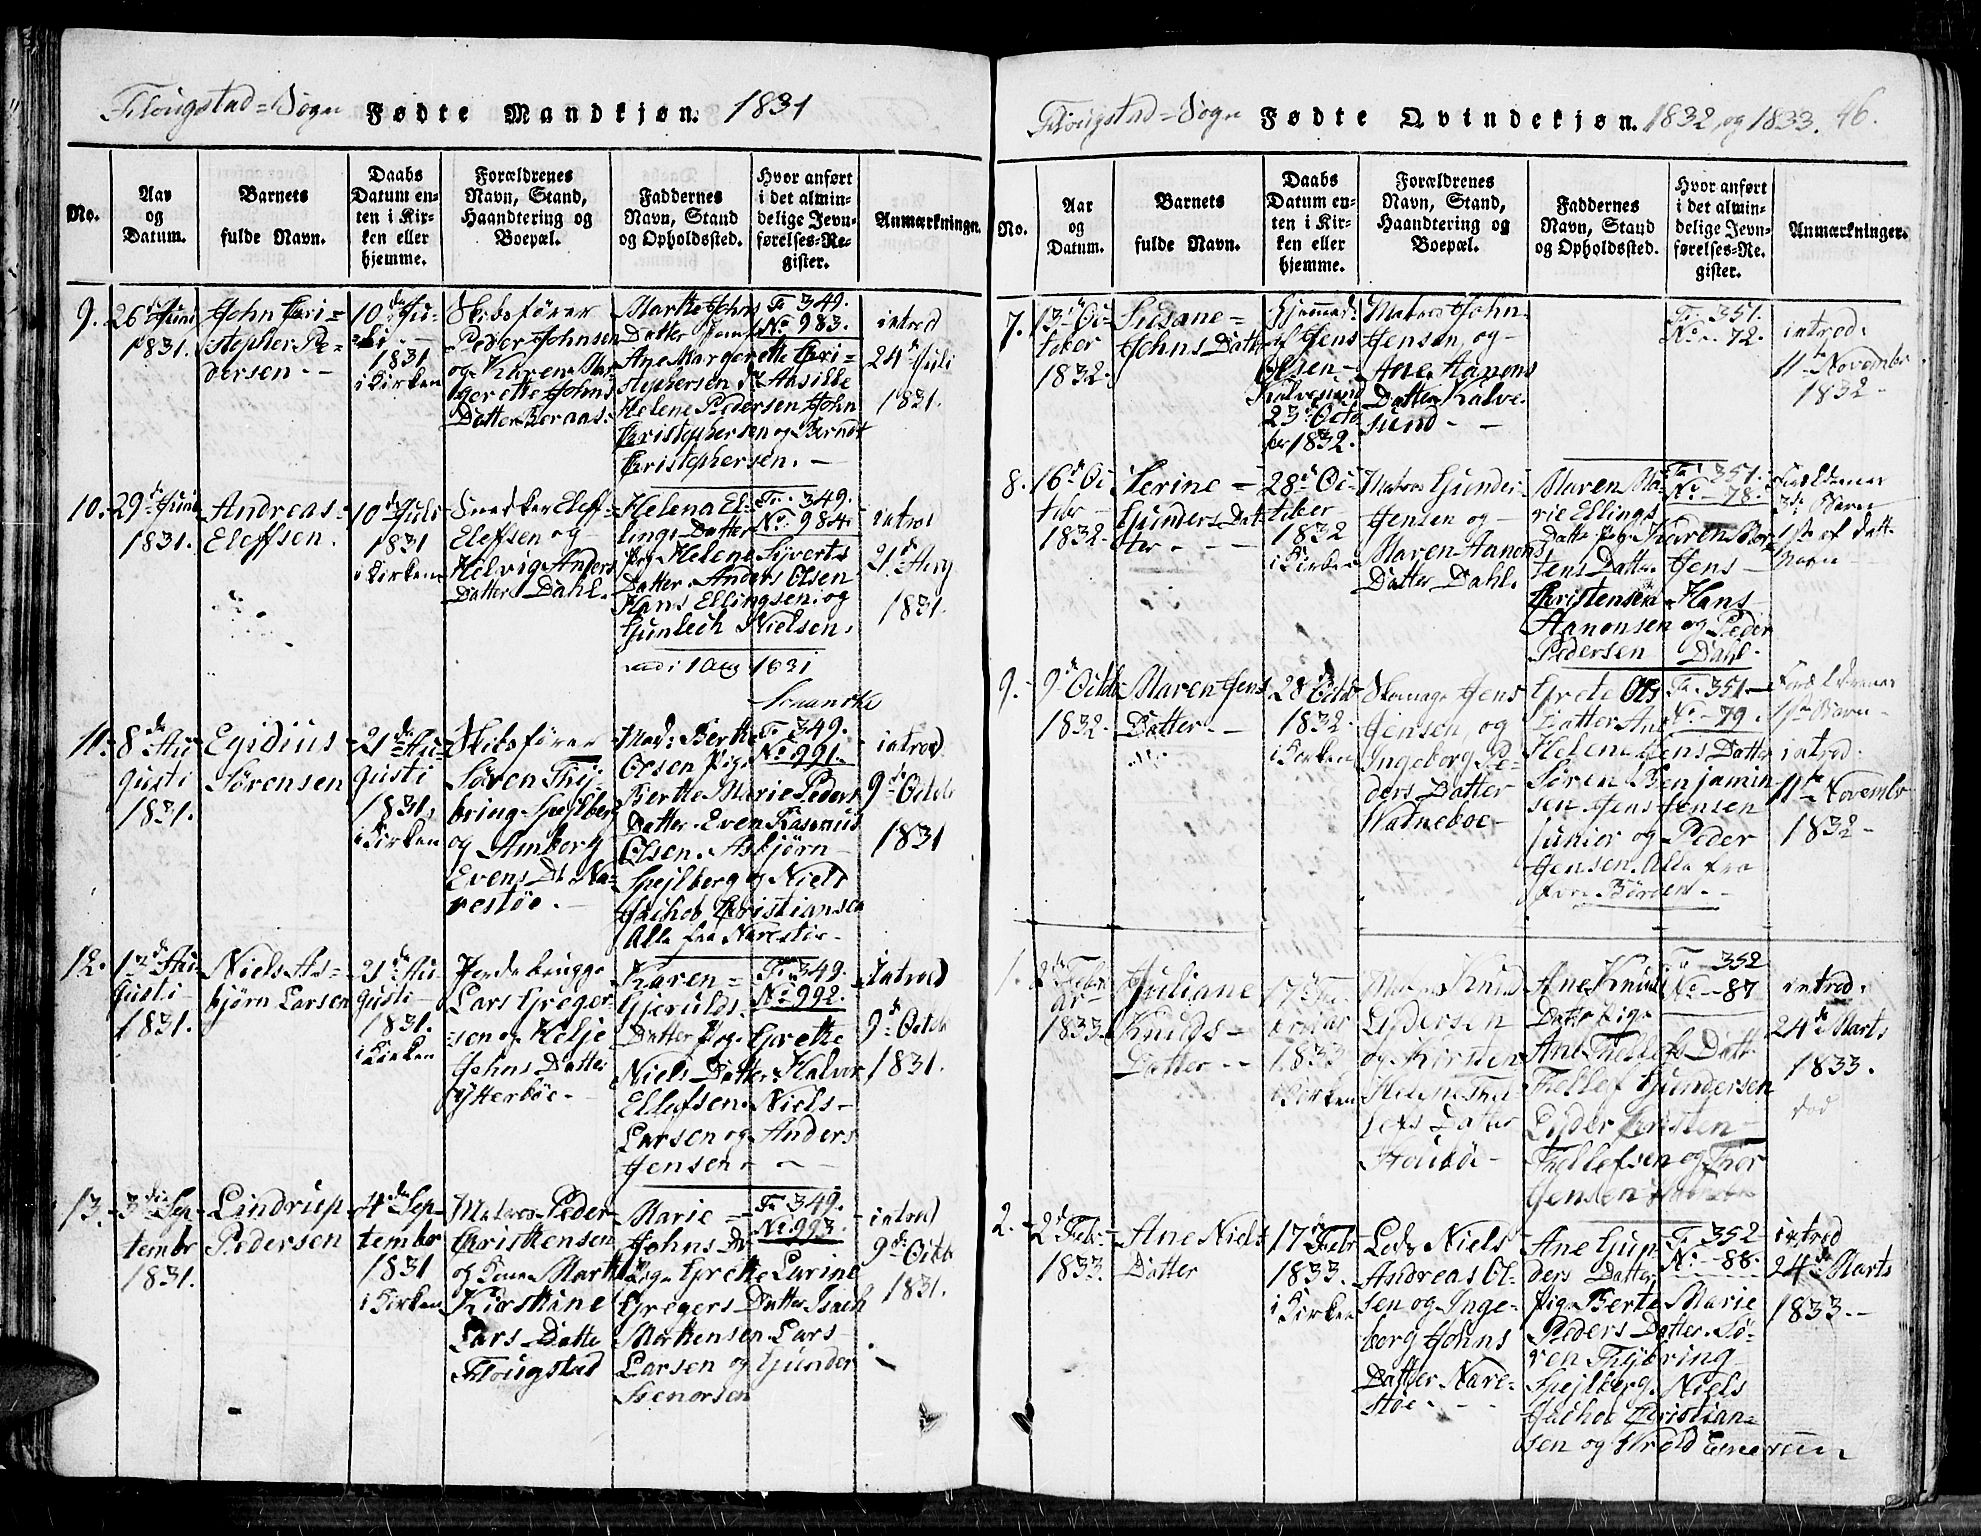 Flougstad=Sogn Fødte Mandkjøn. 1831
No.
Aar
og
Datum.
Barnets
fulde Navn.
Daabs
Datum en-
ten i Kir-
ken eller
hjemme.
Forældrenes
Navn, Stand,
Haandtering og
Boepæl.
Faddernes
Navn, Stand
og Opholdssted.
Hvor anført
i det almin-
delige Jevn-
førelses-Re-
gister.
Anmærkninger.
9.
26 d Juni
1831.
John Cri=
stopher Pe=
dersen --
10 de Ju=
li
1831
i Kirken
Skibsfører
Peder Johnsen
og Karen Mar
grethe Johns
Datter Boraas.
Marthe Johns
Datter
Ane Margrethe Chri=
stophersen
Helene Pedersen John
Christophersen og Berndt
Christophersen. -
Fr 349.
No 983.
introd
24 d Juli
1831.
10.
29 d Juni
1831.
Andreas
Eleffsen.
10 de Juli
1831
i Kirken
Snedker Eleff
Eleffsen og
Helvig Anders
Datter Dahl.
Helena El=
lings Datter
Pig. Helene Syverts
Datter. Anders Olsen
Hans Ellingsen og
Gunlech Nielsen.
1 Aug 1831
Fr. 349.
No. 984.
introd
21 d Aug
1831.
11.
8 de Au
gusti
1831.
Egidius
Sørensen
21 de Au
gusti
1831.
i Kirken
Skibsfører
Søren Thy
bring Spejlberg
og Amborg
Evens Dt Na=
restøe. -
Mad: Berthe
Olsen Pige
Berthe Marie Peders
Datter. Even Rasmus
Olsen. Asbjørn
Spejlberg og Niels
Jachob Christiansen
Alle fra Narestøe -
Fr 349.
No 991.
introd
9 d Octob
1831
12.
1 d Au
gusti
1831.
Niels As=
bjørn Larsen
21 de Au
gusti
1831.
i Kirken
Lars Greger
sen og Helje
Johns Datter
Ytterbøe -
Karen =
Gjerulds
Datter Pige Grethe
Niels Datter. Halvor
Ellefsen. Niels
Larsen og Anders
Jensen - -
Fr. 349.
No 992.
Introd
9 d Octob
1831.
13.
3 die Sep
tembr
1831.
Lindrup
Pedersen
4 de Sep
tembr
1831
i Kirken
Matros Peder
Christensen
og Kone
Kirstine
Lars Datte
Flougstad
Marie =
Johns Dr
Pige Grethe Larine
Gregers Datter. Isach
Mortensen. Lars
Larsen og Gunder
Fr 349.
No 993.
introd
9 d Octob
1831.
Flougstad=Sogn Fødte Qvindekjøn. 1832 og 1833. 46.
No.
Aar
og
Datum.
Barnets
fulde Navn.
Daabs
Datum en-
ten i Kir-
ken eller
hjemme.
Forældrenes
Navn, Stand,
Haandtering og
Boepæl.
Faddernes
Navn, Stand
og Opholdssted.
Hvor anført
i det almin-
delige Jevn-
førelses-Re-
gister.
Anmærkninger.
7.
13 d Oc
tober
1832.
Susane =
Johns Datter
Hjemmed:
af Jens
Olsen -
Kalvesund
23 d Octo
ber 1832.
Matros John
Jensen, og
Ane Aanons
Datter Kalve
sund - -
Fr. 351.
No. 72.
introd:
11 te Novembr
1832 -
8.
16 d Oc
tobr
1832.
Terine -
Gunders Dat
ter - - -
28 d Oc
tober
1832
i Kirken
Matros Gunder
Jensen og
Maren Aanons
Datter Dahl.
Maren Ma
rie Ellings
Datte Pig Karen Mor
tens Datter Jens
Christensen Hans
Aanonsen og Peder
Pedersen Dahl.
Fr: 351.
No - 78.
Forældrenes
3 de Barn
1 ste af dette
Navn
9.
9 d Octob
1832.
Maren Jens
Datter. -
28 d Octob
1832
i Kirken
Skomager Jens
Jensen, og
Ingeborg Pe
ders Datter
Watneboe -
Grete Ols
Datter Ane
Helene Jens Datter
Søren Benjamin
sen. Jens Jensen
junior og Peder
Jensen. Alle fra
Fr. 351.
No - 79.
Forældrenes
Barn
introd:
11 te Novembr
1832 -
1.
2 d Febr
1833.
Juliane
Knuds
Datter - -
17 Fe
bruar
1833
i Kirken
Matros Knud
Pedersen
og Kirsten
Helene Tel
lefs Datter
Houbøe -
Ane Knuds
Datte Pige
Ane Tellefs Datt
Tellef Gundersen
Peder Christen
Tellefsen og Thor
Jensen
Fr 352
No - 87
introd:
24 de Marts
1833.
død
2.
2 d Febr
1833.
Ane Niels
Datter
17 d Febr
1833.
i Kirken
Lods Niels
Andreas Ol
sen og Inge
borg Johns
Datter Nare
støe -
Ane Gun
ders Datter
Pige Berte Marie
Peders Datter. Sø
ren Thybring
Spejlberg. Niels
Jachob Christian=
sen og
Fr 352
No - 88.
introd
24 de Marts
1833. -